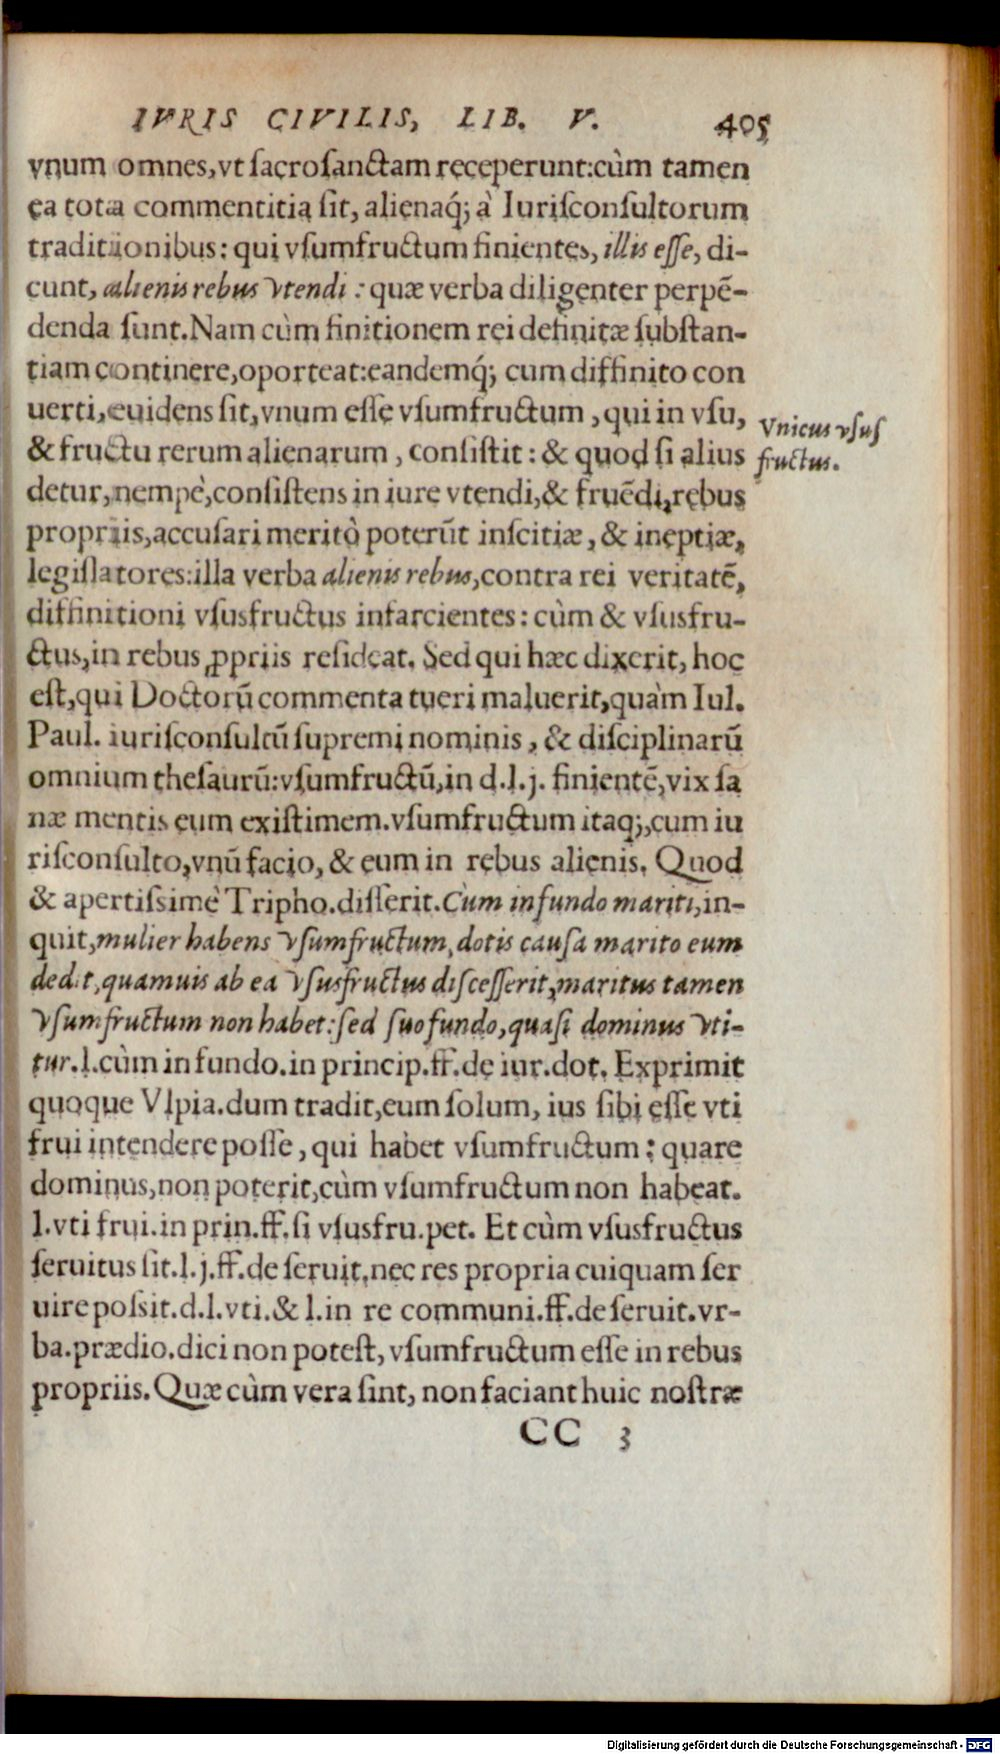 IVRIS CIVILIS, LIB. V. 405
vnum omnes, vt sacrosanctam receperunt: cùm tamen
ea tota commentitia sit, alienaq́; à Iurisconsultorum
traditionibus: qui vsumfructum finientes, illis esse, di-
cunt, alienis rebus vtendi: quæ verba diligenter perpē-
denda sunt. Nam cùm finitionem rei definitæ substan-
tiam continere, oporteat: eandemq́; cum diffinito con
uerti, euidens sit, vnum esse vsumfructum, qui in vsu,
& fructu rerum alienarum, consistit: & quod si alius
Vnicus vsus
fructus.
detur, nempè, consistens in iure vtendi, & fruēdi, rebus
propriis, accusari meritò poterūt inscitiæ, & ineptiæ,
legislatores: illa verba alienis rebus, contra rei veritatē,
diffinitioni vsusfructus infarcientes: cùm & vsusfru-
ctus, in rebus ꝓpriis resideat. Sed qui hæc dixerit, hoc
est, qui Doctorū commenta tueri maluerit, quàm Iul.
Paul. iurisconsultū supremi nominis, & disciplinarū
omnium thesaurū: vsumfructū, in d.l.j. finientē, vix sa
næ mentis eum existimem. vsumfructum itaq;, cum iu
risconsulto, vnū facio, & eum in rebus alienis. Quod
& apertissimè Tripho. disserit. Cùm in fundo mariti, in-
quit, mulier habens vsumfructum, dotis causa marito eum
dedit, quamuis ab ea vsusfructus discesserit, maritus tamen
vsumfructum non habet: sed suo fundo, quasi dominus vti-
tur. l. cùm in fundo. in princip. ff. de iur. dot. Exprimit
quoque Vlpia. dum tradit, eum solum, ius sibi esse vti
frui intendere posse, qui habet vsumfructum: quare
dominus, non poterit, cùm vsumfructum non habeat.
l. vti frui. in prin. ff. si vsusfru. pet. Et cùm vsusfructus
seruitus sit. l. j. ff. de seruit. nec res propria cuiquam ser
uire possit. d. l. vti. & l. in re communi. ff. de seruit. vr-
ba. prædio. dici non potest, vsumfructum esse in rebus
propriis. Quæ cùm vera sint, non faciant huic nostræ
CC 3
Digitalisierung gefördert durch die Deutsche Forschungsgemeinschaft - DFG